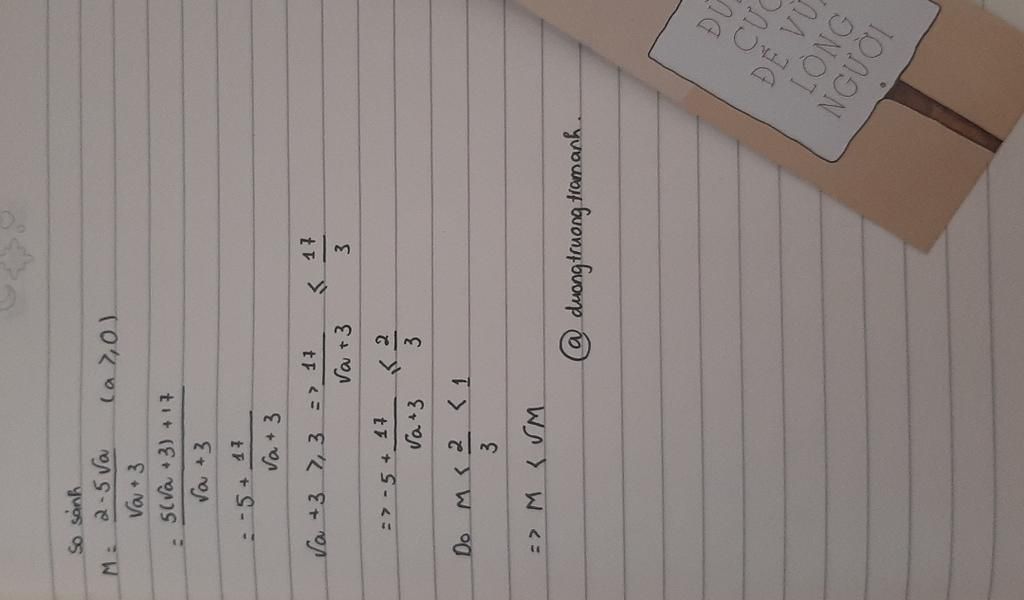 So sánh
M = 2 - 5√a / √a + 3 (a ≥ 0)
= 5(√a + 3) + 17 / √a + 3
= -5 + 17 / √a + 3
√a + 3 ≥ 3 => 17 / √a + 3 ≤ 17 / 3
=> -5 + 17 / √a + 3 ≤ 2 / 3
Do M < 2 / 3 < 1
=> M < √M
@ duongtruongtramanh.
ĐỪ
CƯỚ
ĐỂ VỪA
LÒNG
NGƯỜI